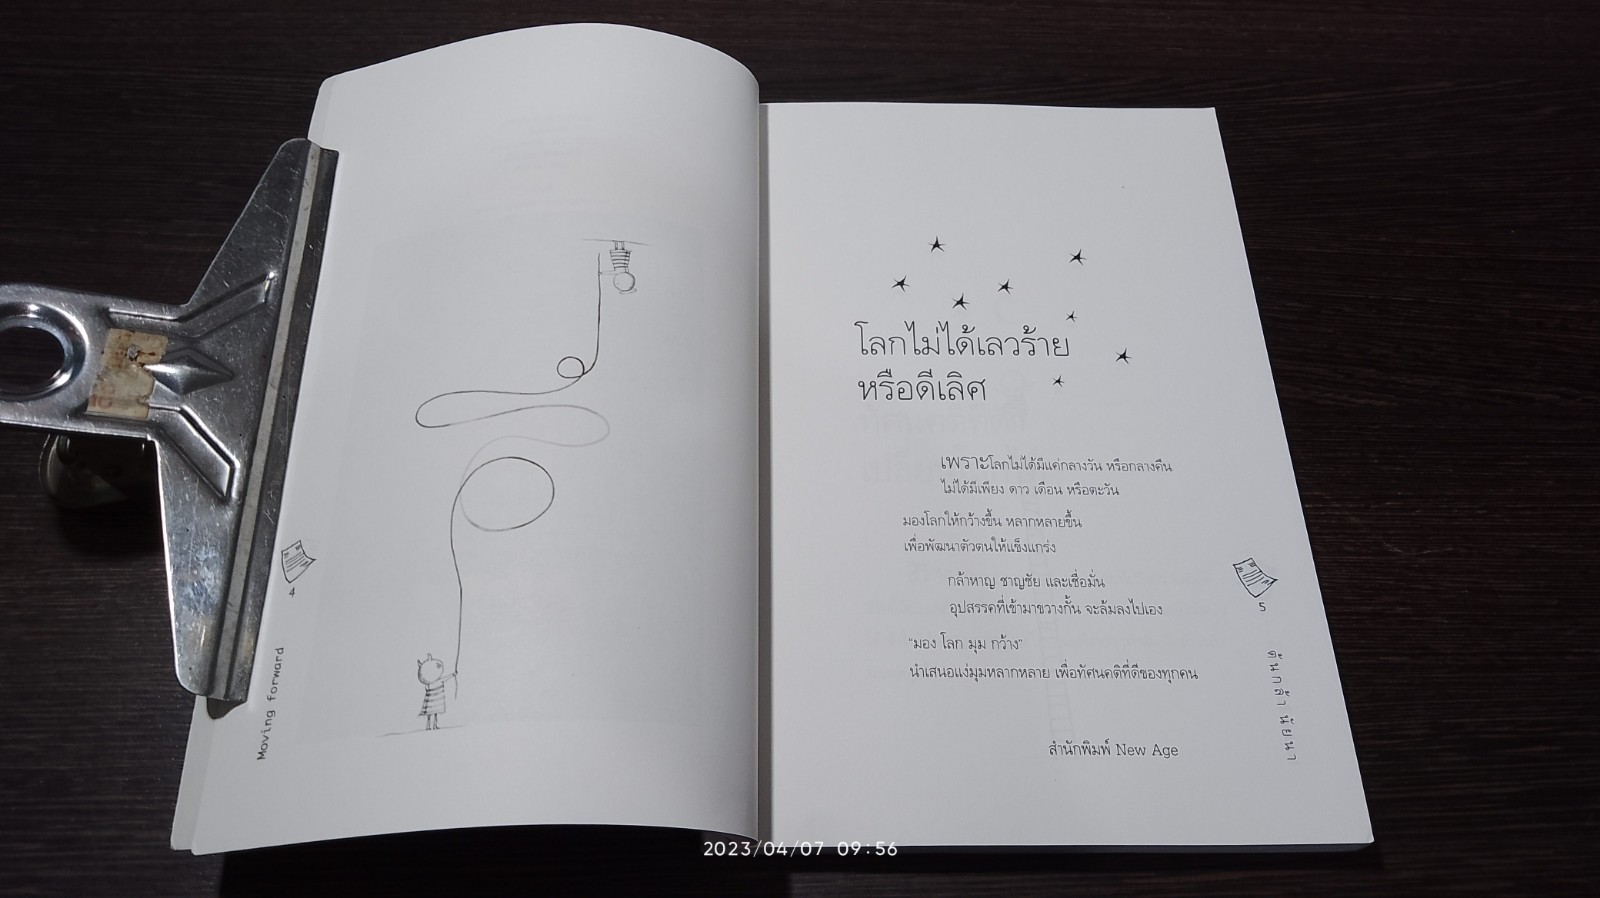 4
Moving forward
โลกไม่ได้เลวร้าย
หรือดีเลิศ
เพราะโลกไม่ได้มีแค่กลางวัน หรือกลางคืน
ไม่ได้มีเพียง ดาว เดือน หรือตะวัน
มองโลกให้กว้างขึ้น หลากหลายขึ้น
เพื่อพัฒนาตัวตนให้แข็งแกร่ง
กล้าหาญ ชาญชัย และเชื่อมั่น
อุปสรรคที่เข้ามาขวางกั้น จะล้มลงไปเอง
"มอง โลก มุม กว้าง"
นำเสนอแง่มุมหลากหลาย เพื่อทัศนคติที่ดีของทุกคน
สำนักพิมพ์ New Age
5
ต้นกล้า นัยนา
2023/04/07 09:56